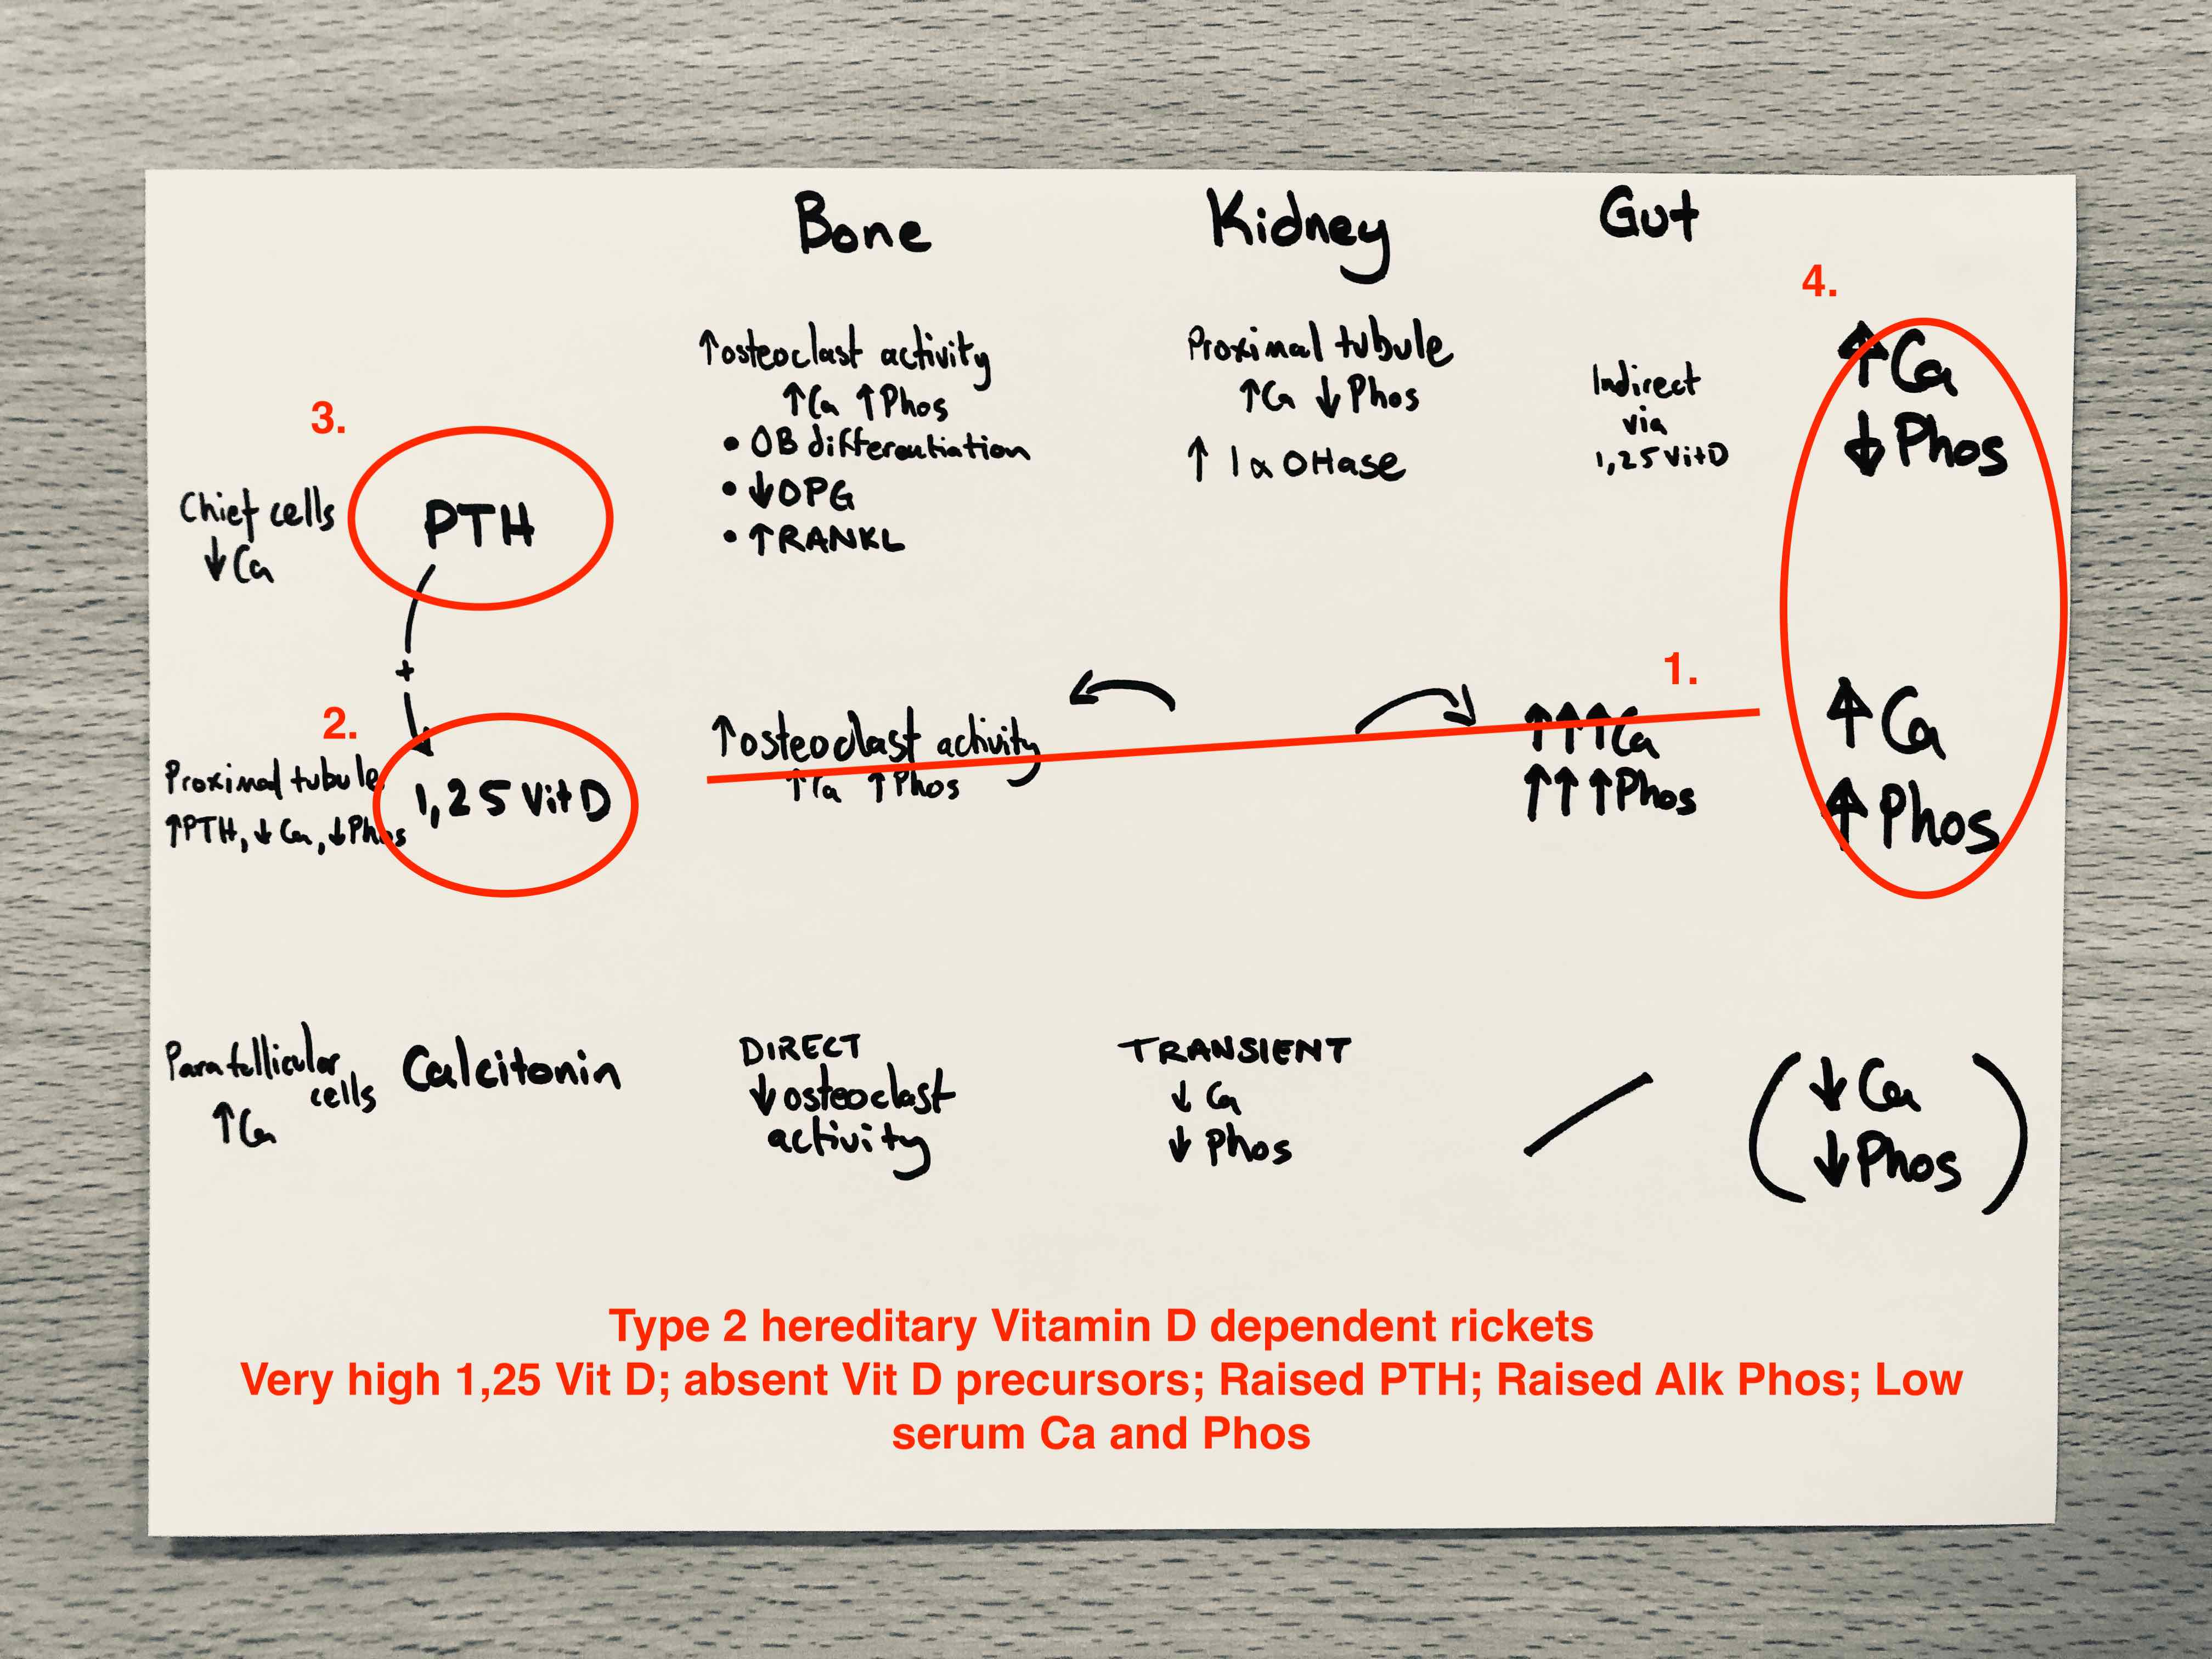 Bone
Kidney
Gut
4.
↑osteoclast activity
↑Ca ↑Phos
• OB differentiation
• ↓OPG
• ↑RANKL
Proximal tubule
↑Ca ↓Phos
↑ 1α OHase
Indirect
via
1,25 Vit D
↑Ca
↓Phos
3.
Chief cells
↓Ca
PTH
+
2.
Proximal tubule
↑PTH, ↓Ca, ↓Phos
1,25 Vit D
↑osteoclast activity
↑Ca ↑Phos
1.
↑↑↑Ca
↑↑↑Phos
↑Ca
↑Phos
Parafollicular
cells
↑Ca
Calcitonin
DIRECT
↓osteoclast
activity
TRANSIENT
↓ Ca
↓ Phos
(↓Ca
↓Phos)
Type 2 hereditary Vitamin D dependent rickets
Very high 1,25 Vit D; absent Vit D precursors; Raised PTH; Raised Alk Phos; Low
serum Ca and Phos